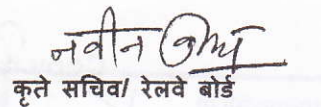 नवीन
कृते सचिव/ रेलवे बोर्ड